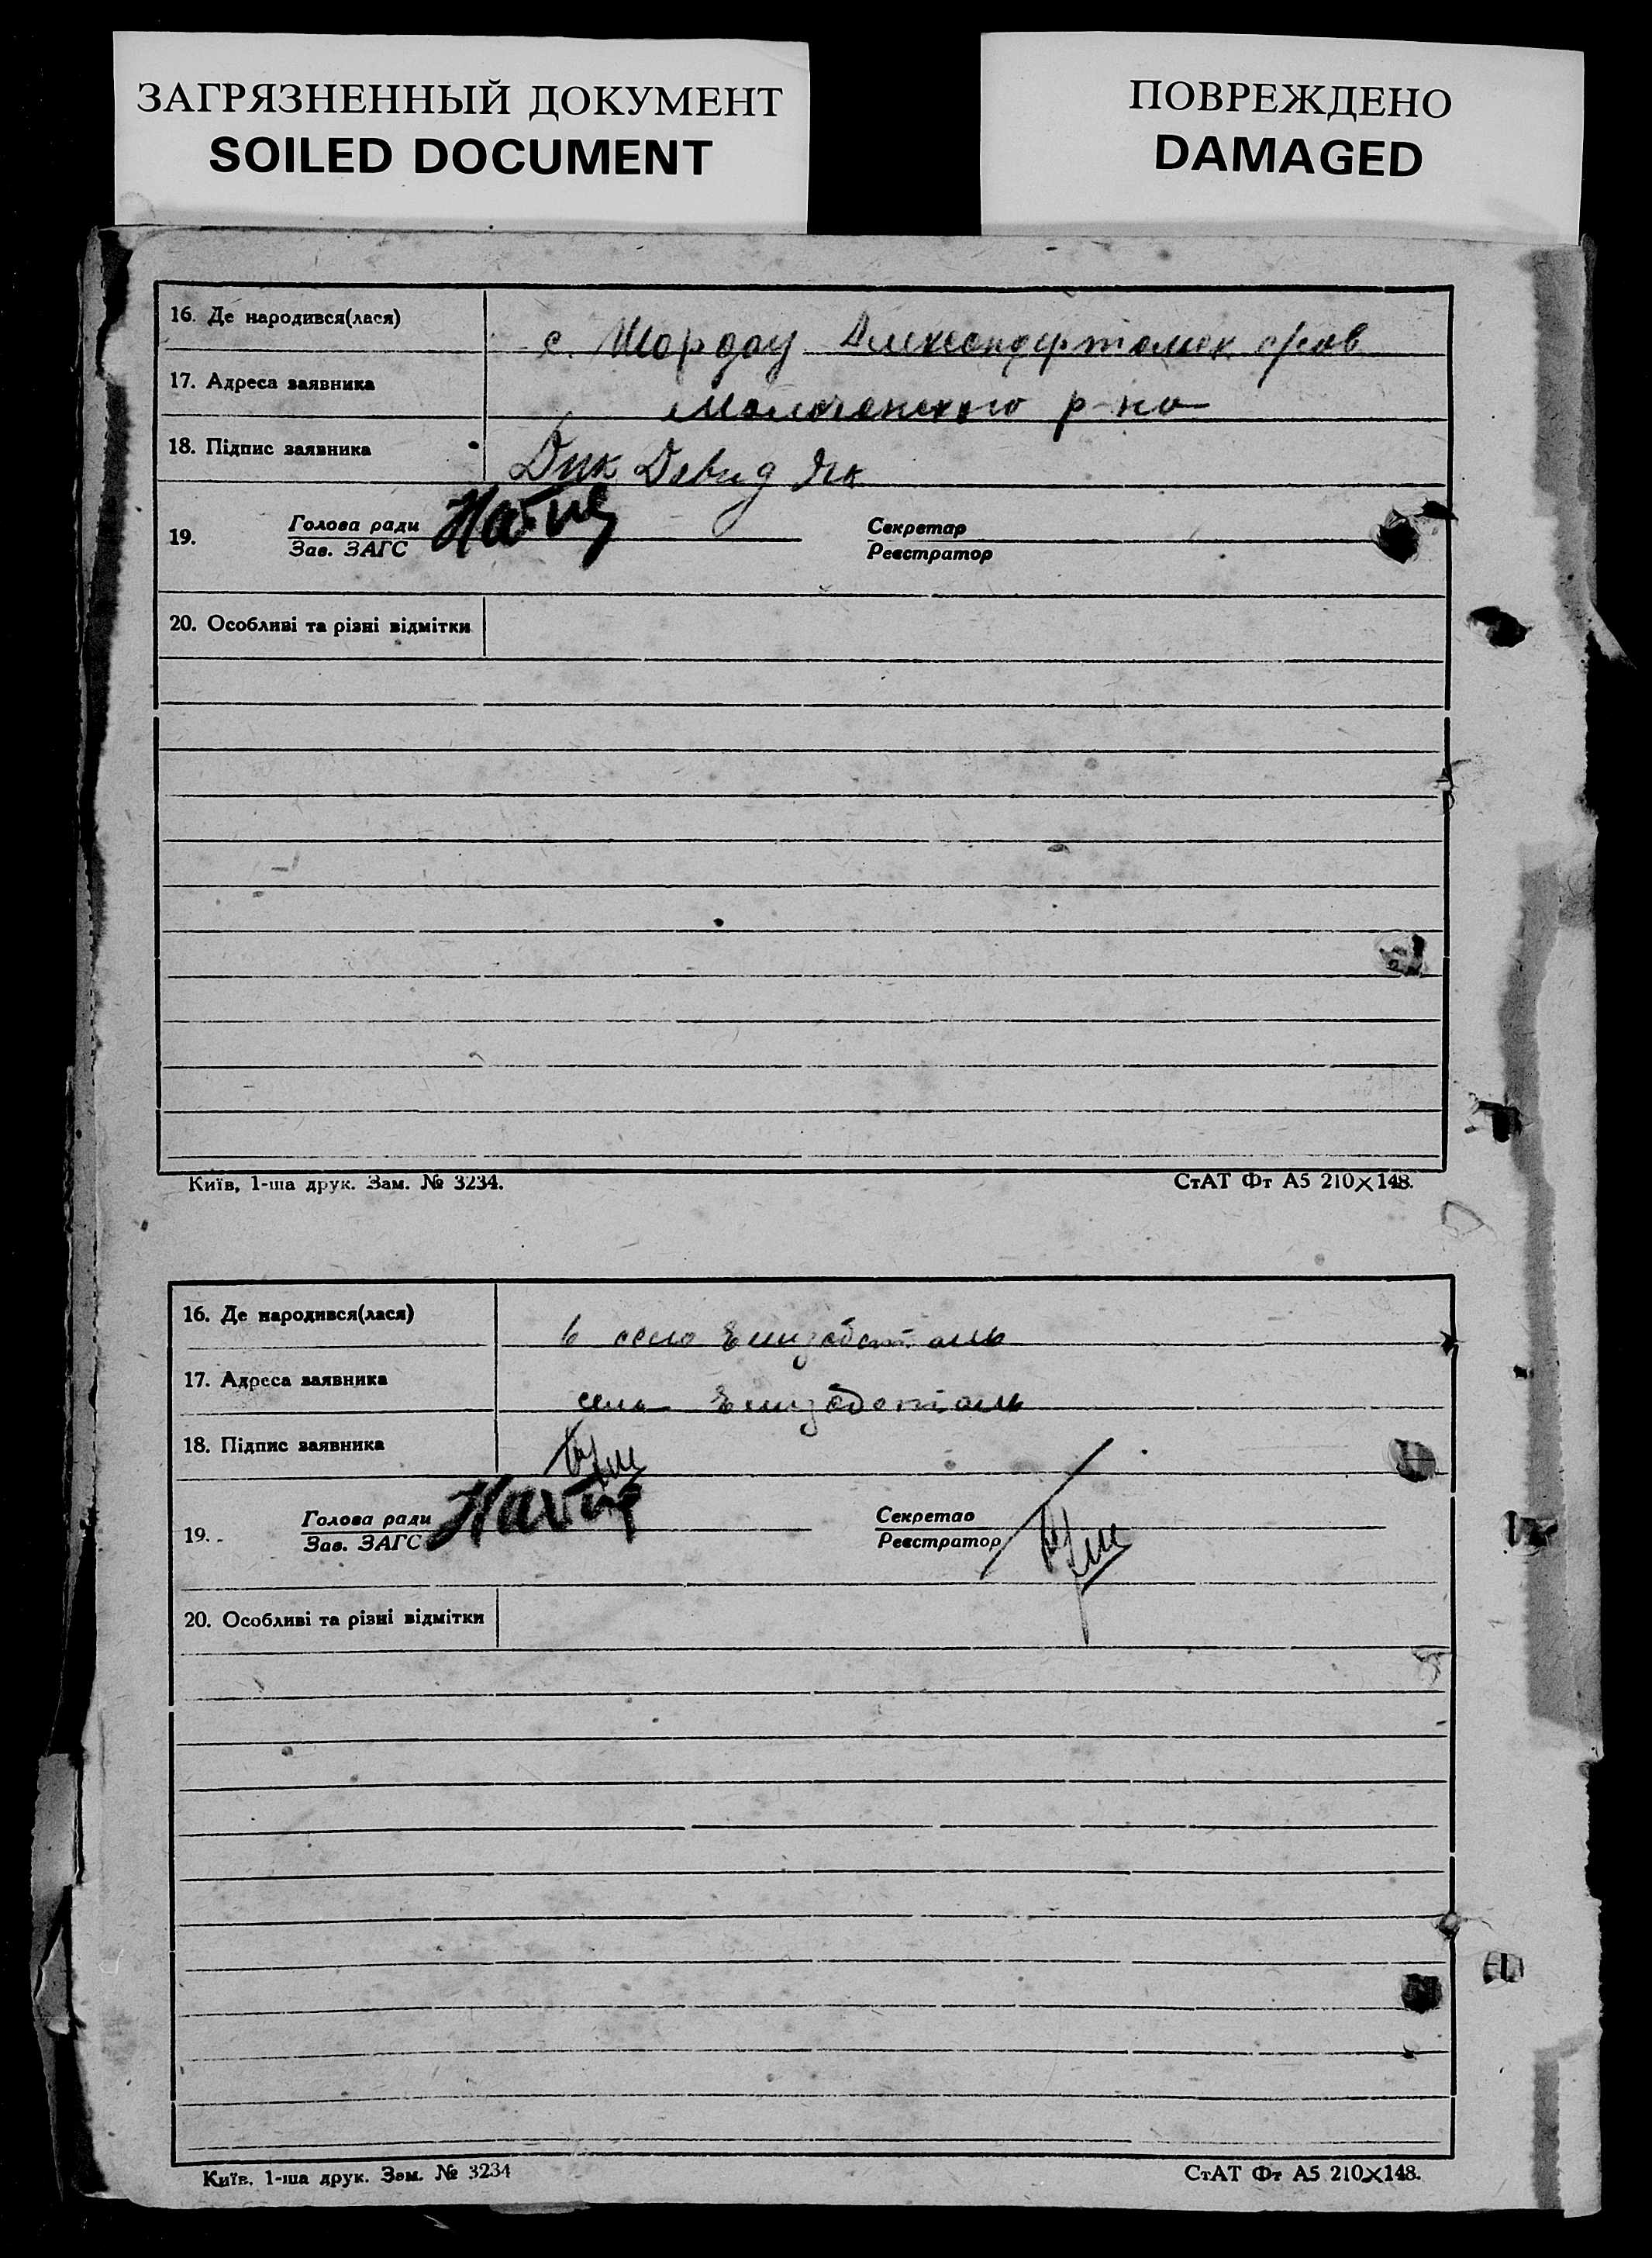 ЗАГРЯЗНЕННЫЙ ДОКУМЕНТ
SOILED DOCUMENT
ПОВРЕЖДЕНО
DAMAGED
16. Де народився(лася)
с. Шардау
17. Адреса заявника
р-на
18. Підпис заявника
Дик Девид
19. Голова ради
Зав. ЗАГС
Секретар
Реєстратор
20. Особливі та різні відмітки
Київ, 1-ша друк. Зам. № 3234.
СтАТ Фт А5 210×148.
16. Де народився(лася)
в село
17. Адреса заявника
село
18. Підпис заявника
19. Голова ради
Зав. ЗАГС
Секретар
Реєстратор
20. Особливі та різні відмітки
Київ, 1-ша друк. Зам. № 3234
СтАТ Фт А5 210×148.